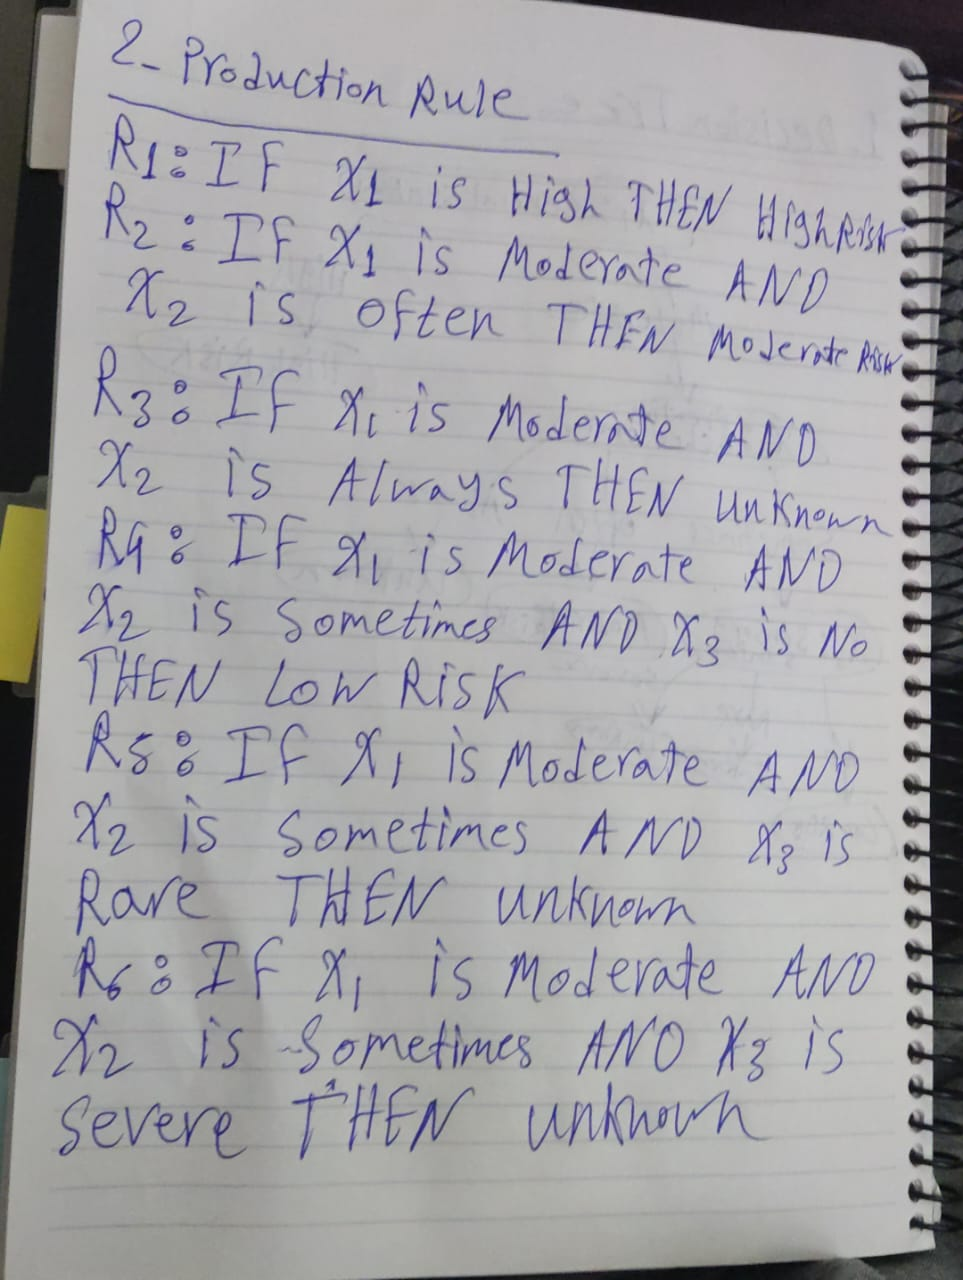 2- Production Rule
R1: IF X1 is High THEN High Risk
R2: IF X1 is Moderate AND
X2 is often THEN Moderate Risk
R3: IF X1 is Moderate AND
X2 is Always THEN unknown
R4: IF X1 is Moderate AND
X2 is Sometimes AND X3 is No
THEN Low Risk
R5: IF X1 is Moderate AND
X2 is Sometimes AND X3 is
Rare THEN unknown
R6: IF X1 is Moderate AND
X2 is Sometimes AND X3 is
Severe THEN unknown